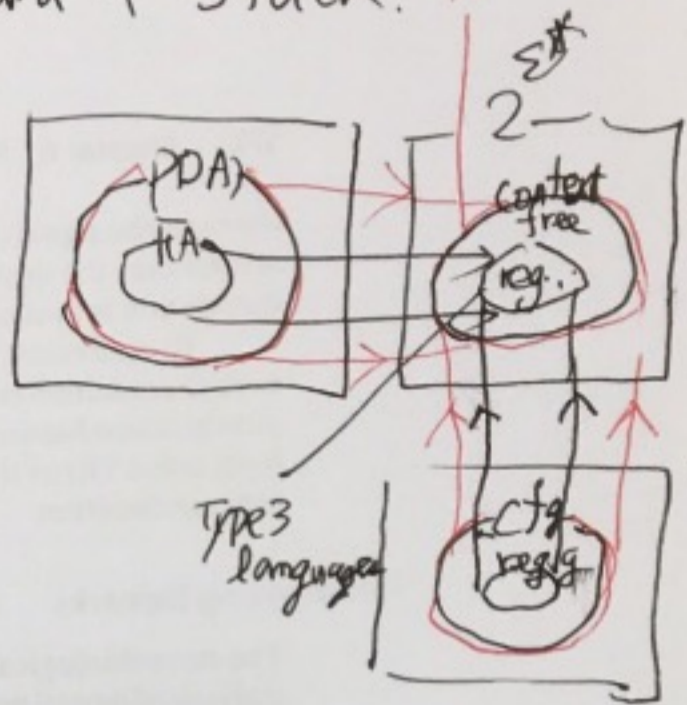 Stack.
2^Σ*
PDA
FA
context
free
reg.
Type3
languages
cfg
reg.g